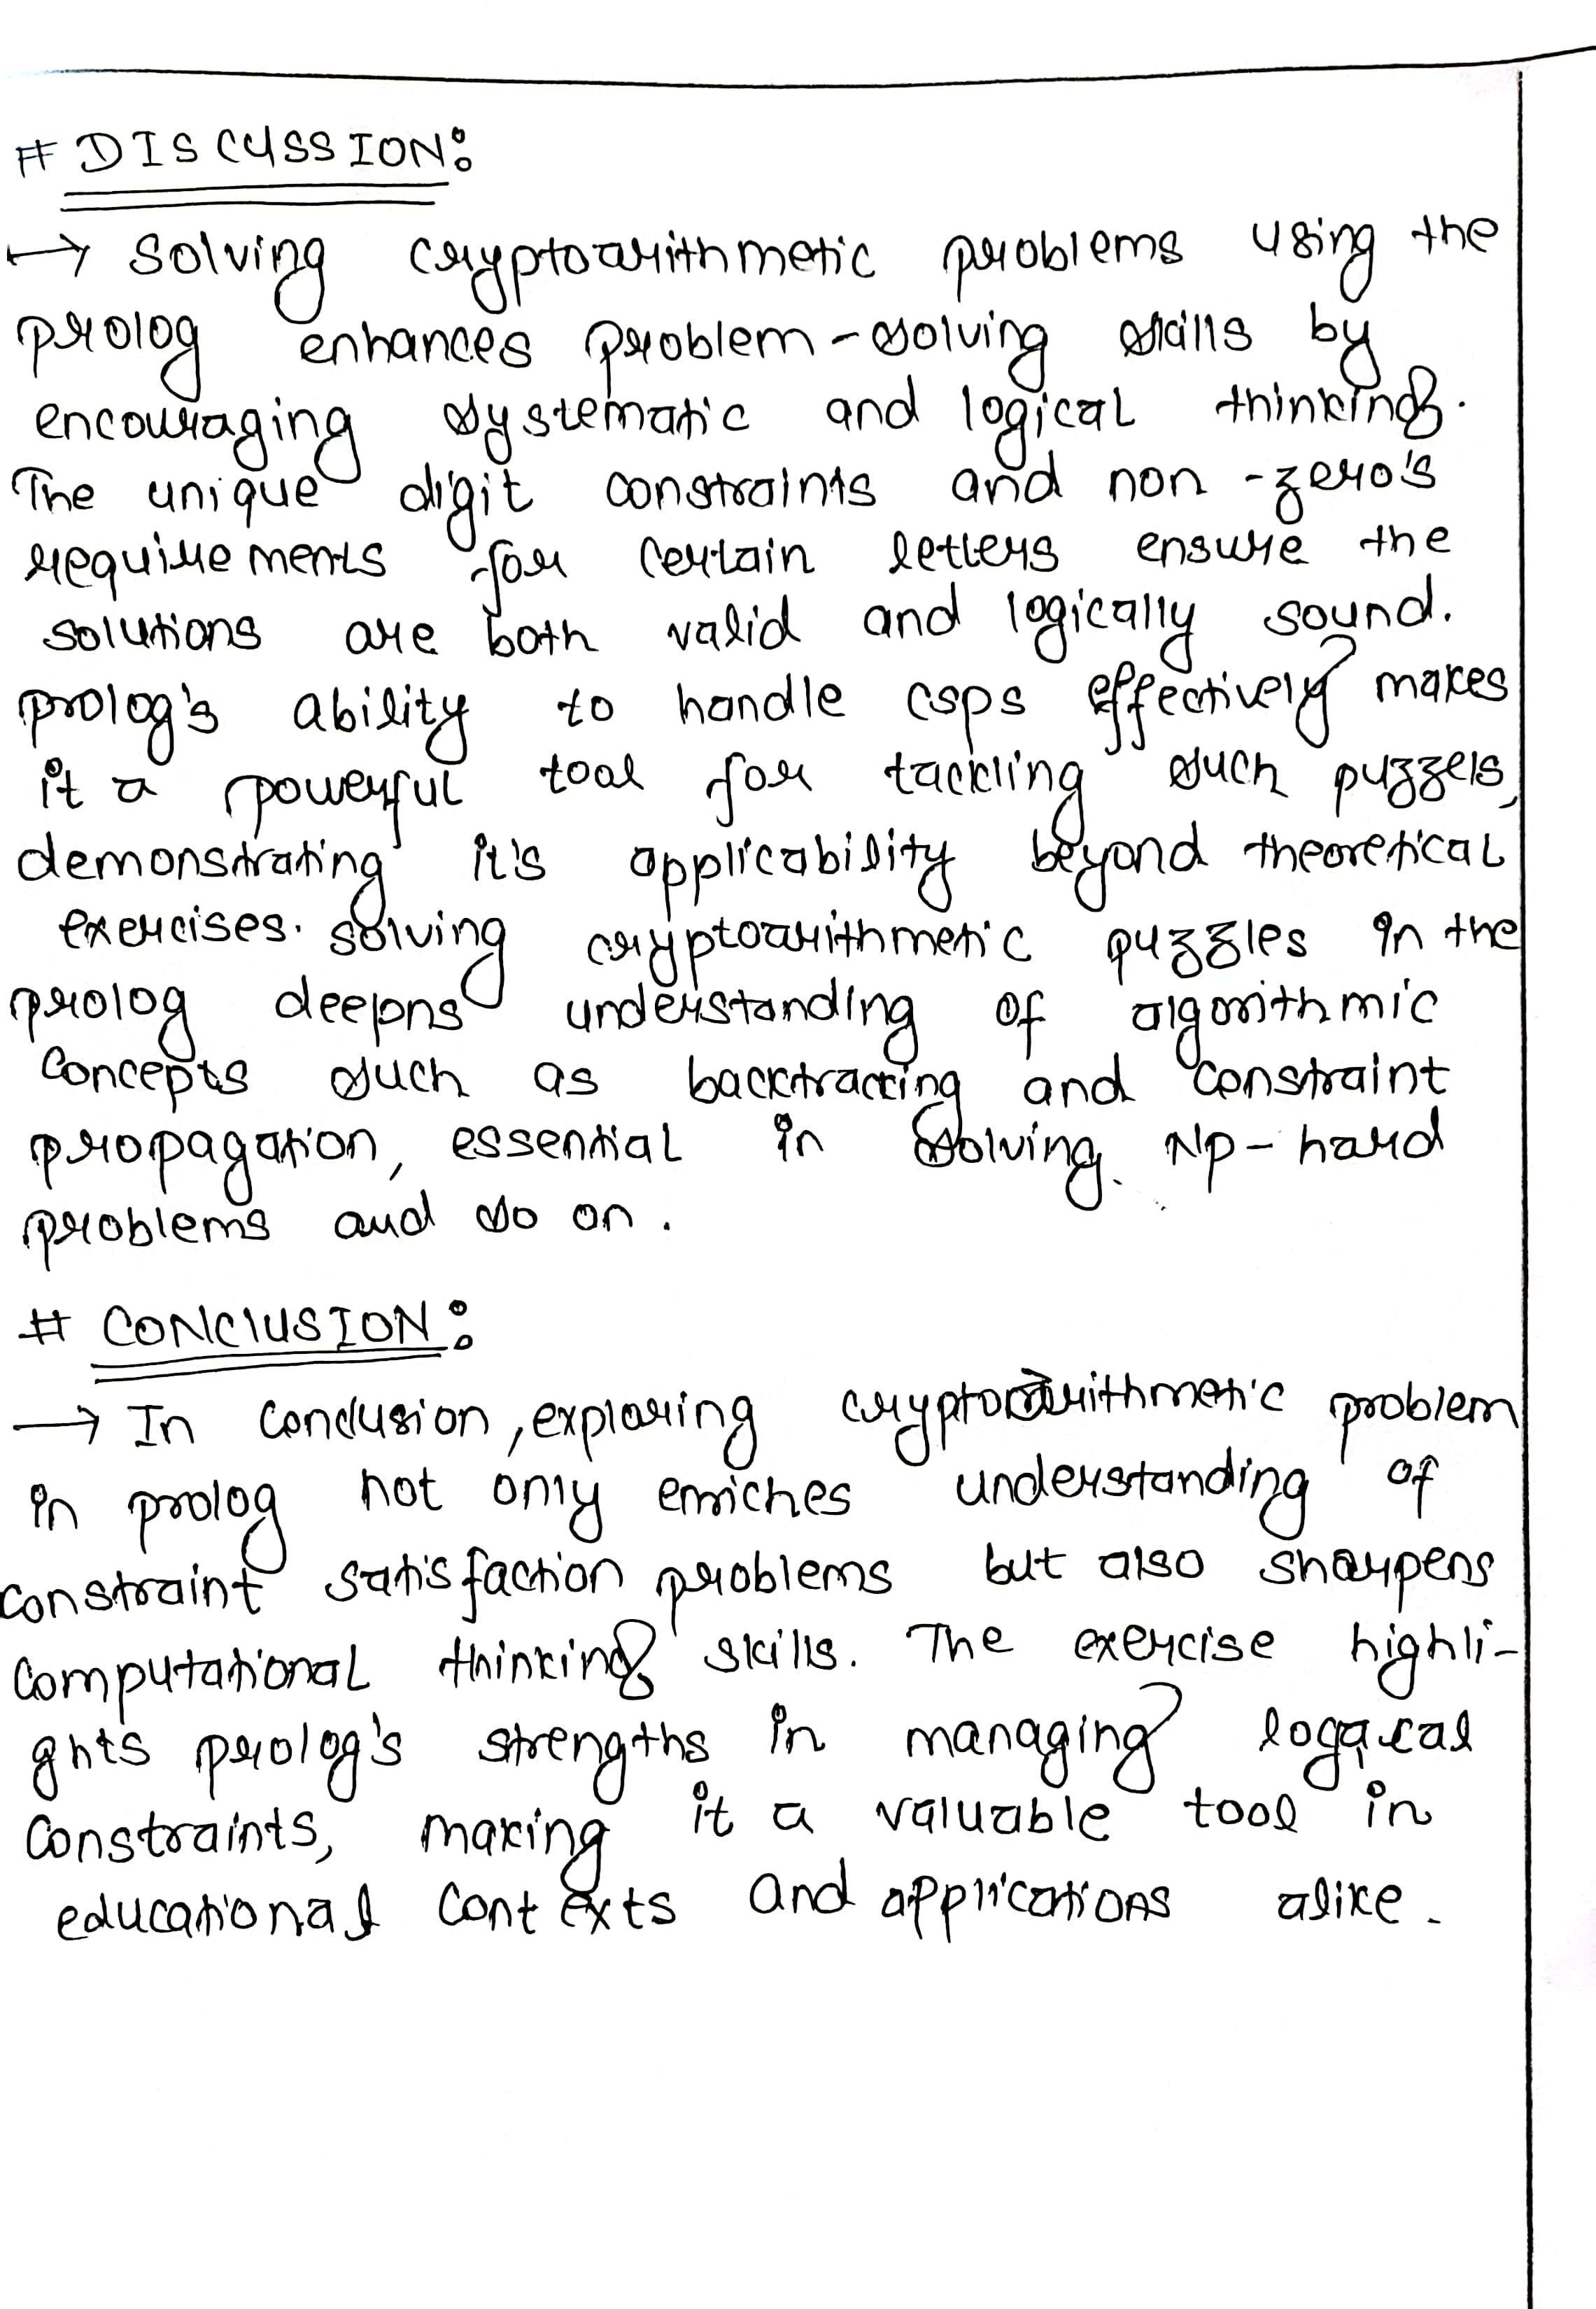 # DISCUSSION:
→ Solving cryptoarithmetic problems using the
prolog enhances problem-solving skills by
encouraging systematic and logical thinking.
The unique digit constraints and non-zero's
requirements for certain letters ensure the
solutions are both valid and logically sound.
prolog's ability to handle csps effectively makes
it a powerful tool for tackling such puzzels,
demonstrating it's applicability beyond theoretical
exercises. solving cryptoarithmetic puzzles in the
prolog deepns understanding of algorithmic
concepts such as backtracking and constraint
propagation, essential in solving Np-hard
problems and so on.
# CONCLUSION:
→ In conclusion, exploring cryptoarithmetic problem
in prolog not only enriches understanding of
constraint satisfaction problems but also sharpens
computational thinking skills. The exercise highli-
ghts prolog's strengths in managing logical
constraints, making it a valuable tool in
educational contexts and applications alike.